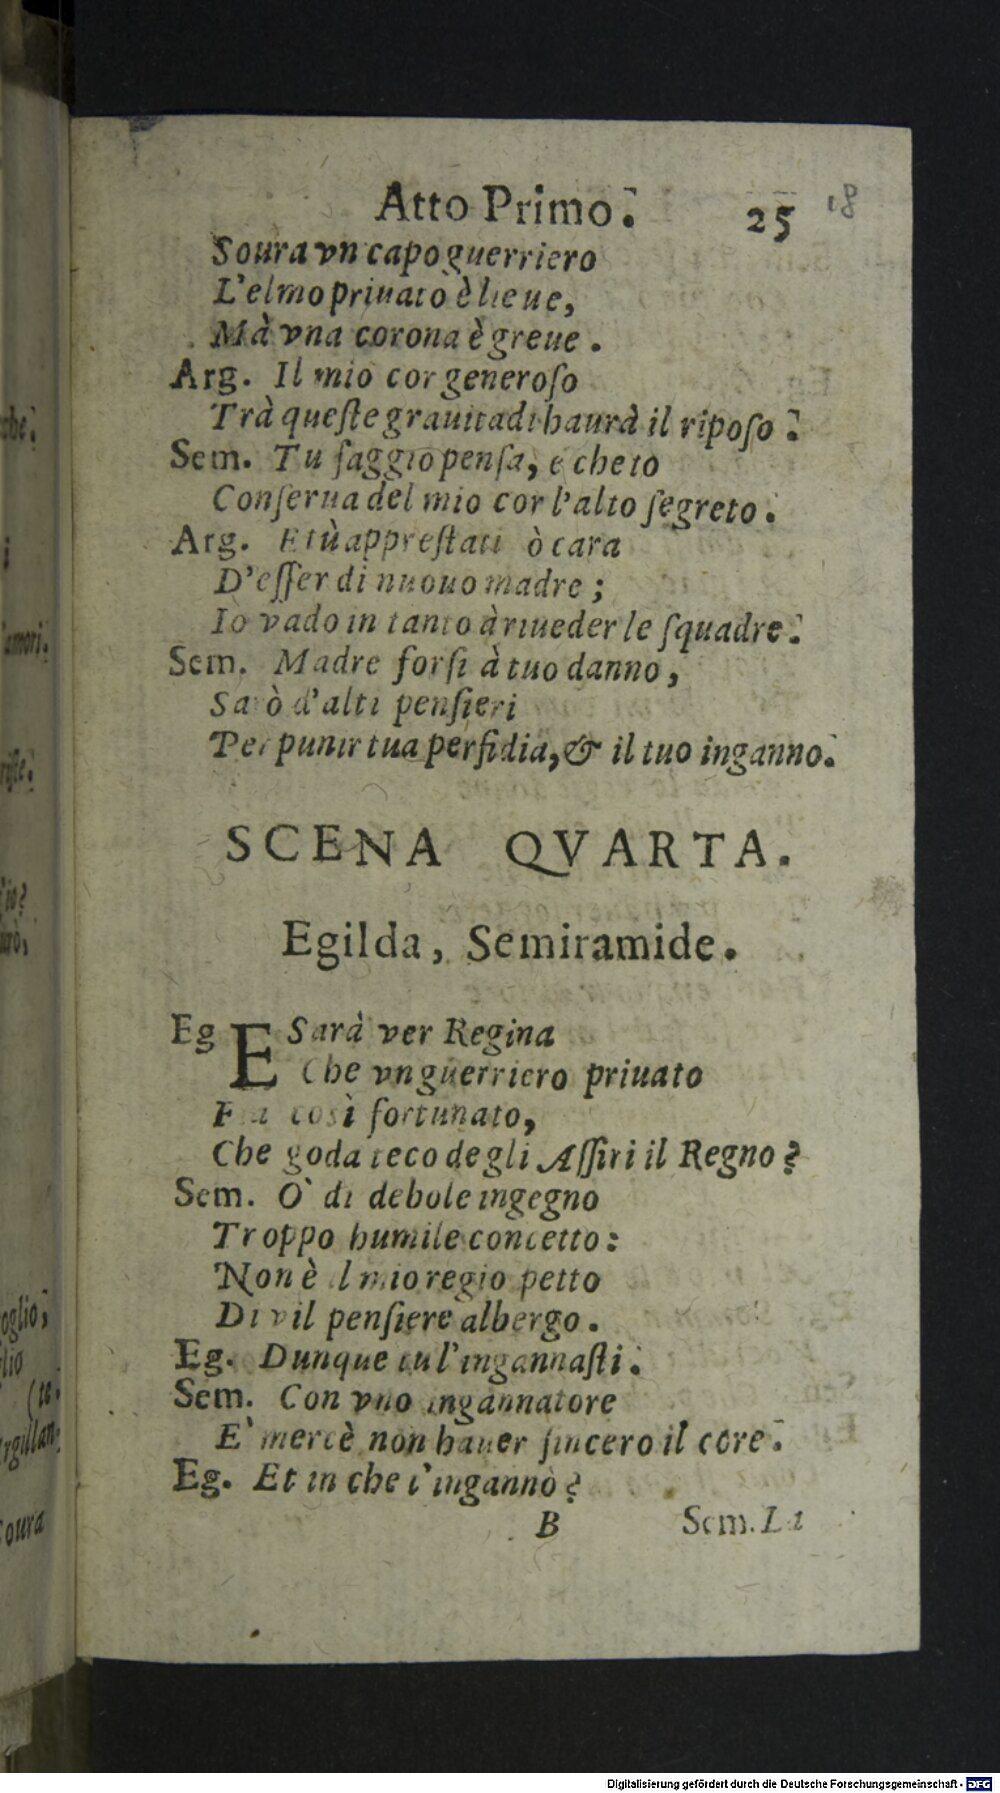 Atto Primo. 25 18
Soura vn capo guerriero
L'elmo priuato è lieue,
Mà vna corona è greue.
Arg. Il mio cor generoſo
Trà queſte grauitadi haurà il ripoſo.
Sem. Tu ſaggio penſa, e cheto
Conſerua del mio cor l'alto ſegreto.
Arg. E tù appreſtati ò cara
D'eſſer di nuouo madre;
Io vado in tanto à riueder le ſquadre.
Sem. Madre forſi à tuo danno,
Sarò d'alti penſieri
Per punir tua perfidia, & il tuo inganno.
SCENA QVARTA.
Egilda, Semiramide.
Eg E Sarà ver Regina
Che vn guerriero priuato
Fia così fortunato,
Che goda teco degli Aſſiri il Regno?
Sem. O' di debole ingegno
Troppo humile concetto:
Non è il mio regio petto
Di vil penſiere albergo.
Eg. Dunque tu l'ingannaſti.
Sem. Con vno ingannatore
E' mercè non hauer ſincero il core.
Eg. Et in che t'ingannò?
B Sem. La
che.
i
amori.
riſte.
io?
urò,
oglio;
lio
(te.
Argillan.
Soura
Digitalisierung gefördert durch die Deutsche Forschungsgemeinschaft - DFG